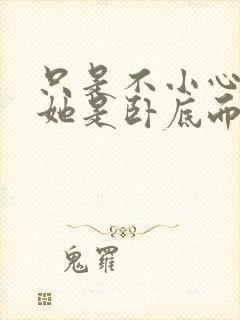 只是不小心
她是卧底而
鬼罗